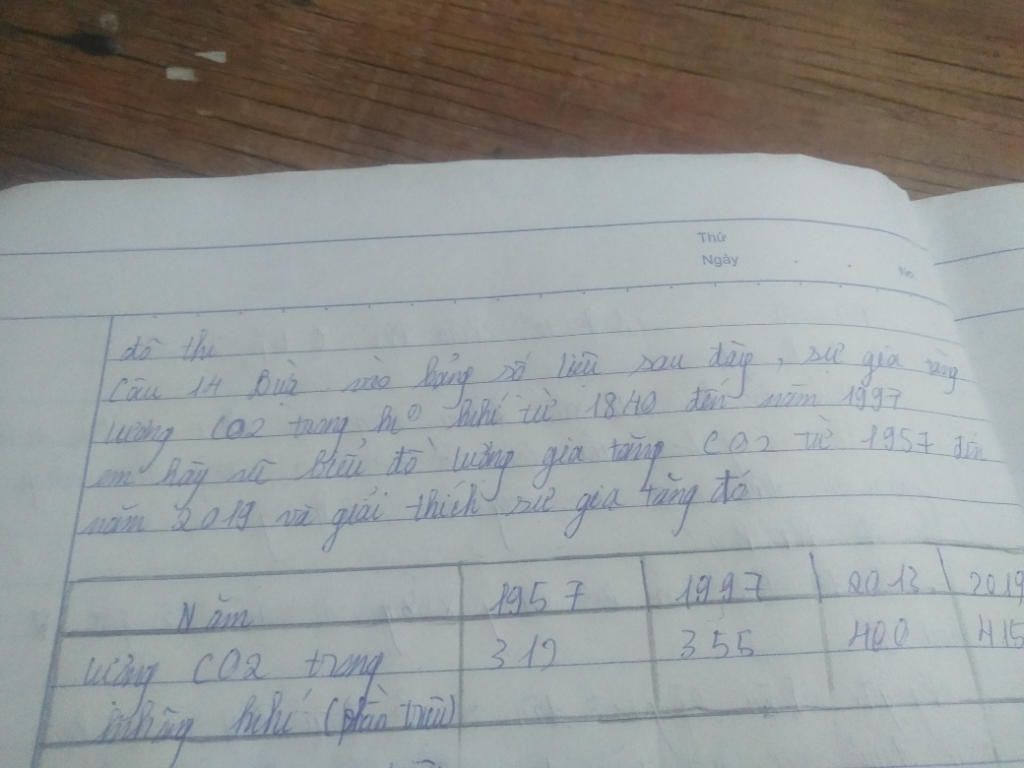 Thứ
Ngày
No
đồ thị
Câu 14 Dựa vào bảng số liệu sau đây, sự gia tăng
lượng CO2 trong khí từ 1840 đến năm 1997
em hãy vẽ biểu đồ lượng gia tăng CO2 từ 1957 đến
năm 2019 và giải thích sự gia tăng đó
Năm 1957 1997 2013 2019
lượng CO2 trong 312 355 400 415
không khí (phần triệu)